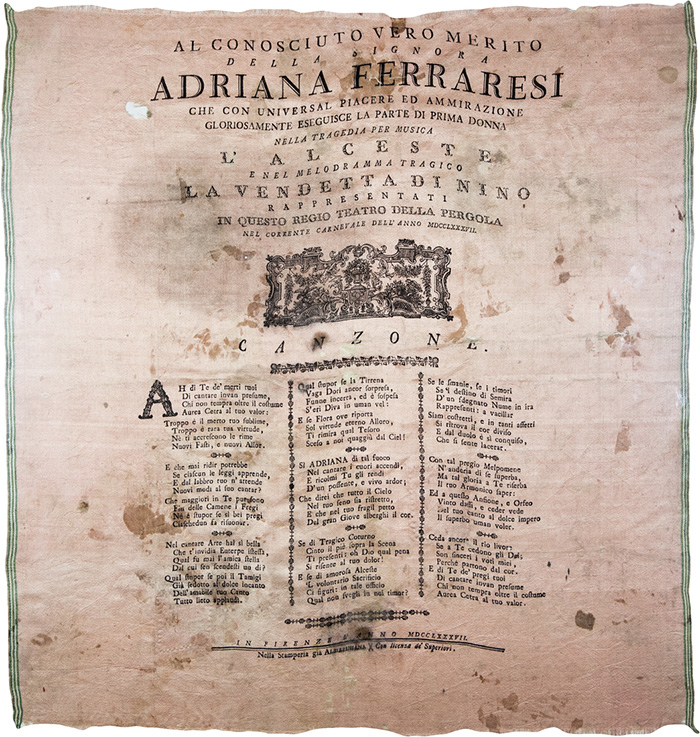 AL CONOSCIUTO VERO MERITO
DELLA SIGNORA
ADRIANA FERRARESI
CHE CON UNIVERSAL PIACERE ED AMMIRAZIONE
GLORIOSAMENTE ESEGUISCE LA PARTE DI PRIMA DONNA
NELLA TRAGEDIA PER MUSICA
L'ALCESTE
E NEL MELODRAMMA TRAGICO
LA VENDETTA DI NINO
RAPPRESENTATI
IN QUESTO REGIO TEATRO DELLA PERGOLA
NEL CORRENTE CARNEVALE DELL'ANNO MDCCLXXXVII.
CANZONE.
AH di Te de' merti tuoi
Di cantare invan presume,
Chi non tempra oltre il costume
Aurea Cetra al tuo valor:
Troppo è il merto tuo sublime,
Troppo è rara tua virtude,
Nè ti accrescono le rime
Nuovi Fasti, e nuovi Allor.
E che mai ridir potrebbe
Se ciascun le leggi apprende,
E dal labbro tuo n'attende
Nuovi modi al suo cantar?
Che maggiori in Te pur sono
Fin delle Camene i Fregi
Nè è stupor se sì bei pregi
Ciaschedun fa risuonar.
Nel cantare Arte hai sì bella
Che t'invidia Euterpe istessa,
Qual fu mai l'amica stella
Dal cui sen scendesti un dì?
Qual stupor se poi il Tamigi
Già sedotto al dolce incanto
Dell'amabile tuo Canto
Tutto lieto applaudì.
Qual stupor se la Tirrena
Vaga Dori ancor sorpresa,
Funne incerta, ed è sospesa
S'eri Diva in uman vel:
E se Flora ove riporta
Sol virtude eterno Alloro,
Ti rimira qual Tesoro
Sceso a noi quaggiù dal Ciel!
Sì ADRIANA di tal fuoco
Nel cantare i cuori accendi,
E ricolmi Tu gli rendi
D'un possente, e vivo ardor;
Che direi che tutto il Cielo
Nel tuo seno sia ristretto,
E che nel tuo fragil petto
Del gran Giove alberghi il cor.
Se di Tragico Coturno
Cinto il piè sopra la Scena
Ti presenti: oh Dio qual pena
Si risente al tuo dolor!
E se di amorosa Alceste
Il volontario Sacrificio
Ci figuri: in tale officio
Qual non svegli in noi timor?
Se le smanie, se i timori
Se il destino di Semira
D'un sdegnato Nume in ira
Rappresenti: a vacillar
Siam costretti, e in tanti affetti
Si ritrova il cor diviso
E dal duolo è sì conquiso,
Che si sente lacerar.
Con tal pregio Melpomene
N'anderia di se superba,
Ma tal gloria a Te riserba
Il tuo Armonico saper:
Ed a questo Anfione, e Orfeo
Vinto dassi, e ceder vede
Del tuo canto al dolce impero
Il superbo uman voler.
Ceda ancor il rio livor:
Se a Te cedono gli Dei;
Son sinceri i voti miei,
Perchè partono dal cor.
E di Te de' pregi tuoi
Di cantare invan presume
Chi non tempra oltre il costume
Aurea Cetra al tuo valor.
IN FIRENZE L'ANNO MDCCLXXXVII.
Nella Stamperia già ALBIZZINIANA) Con licenza de' Superiori.